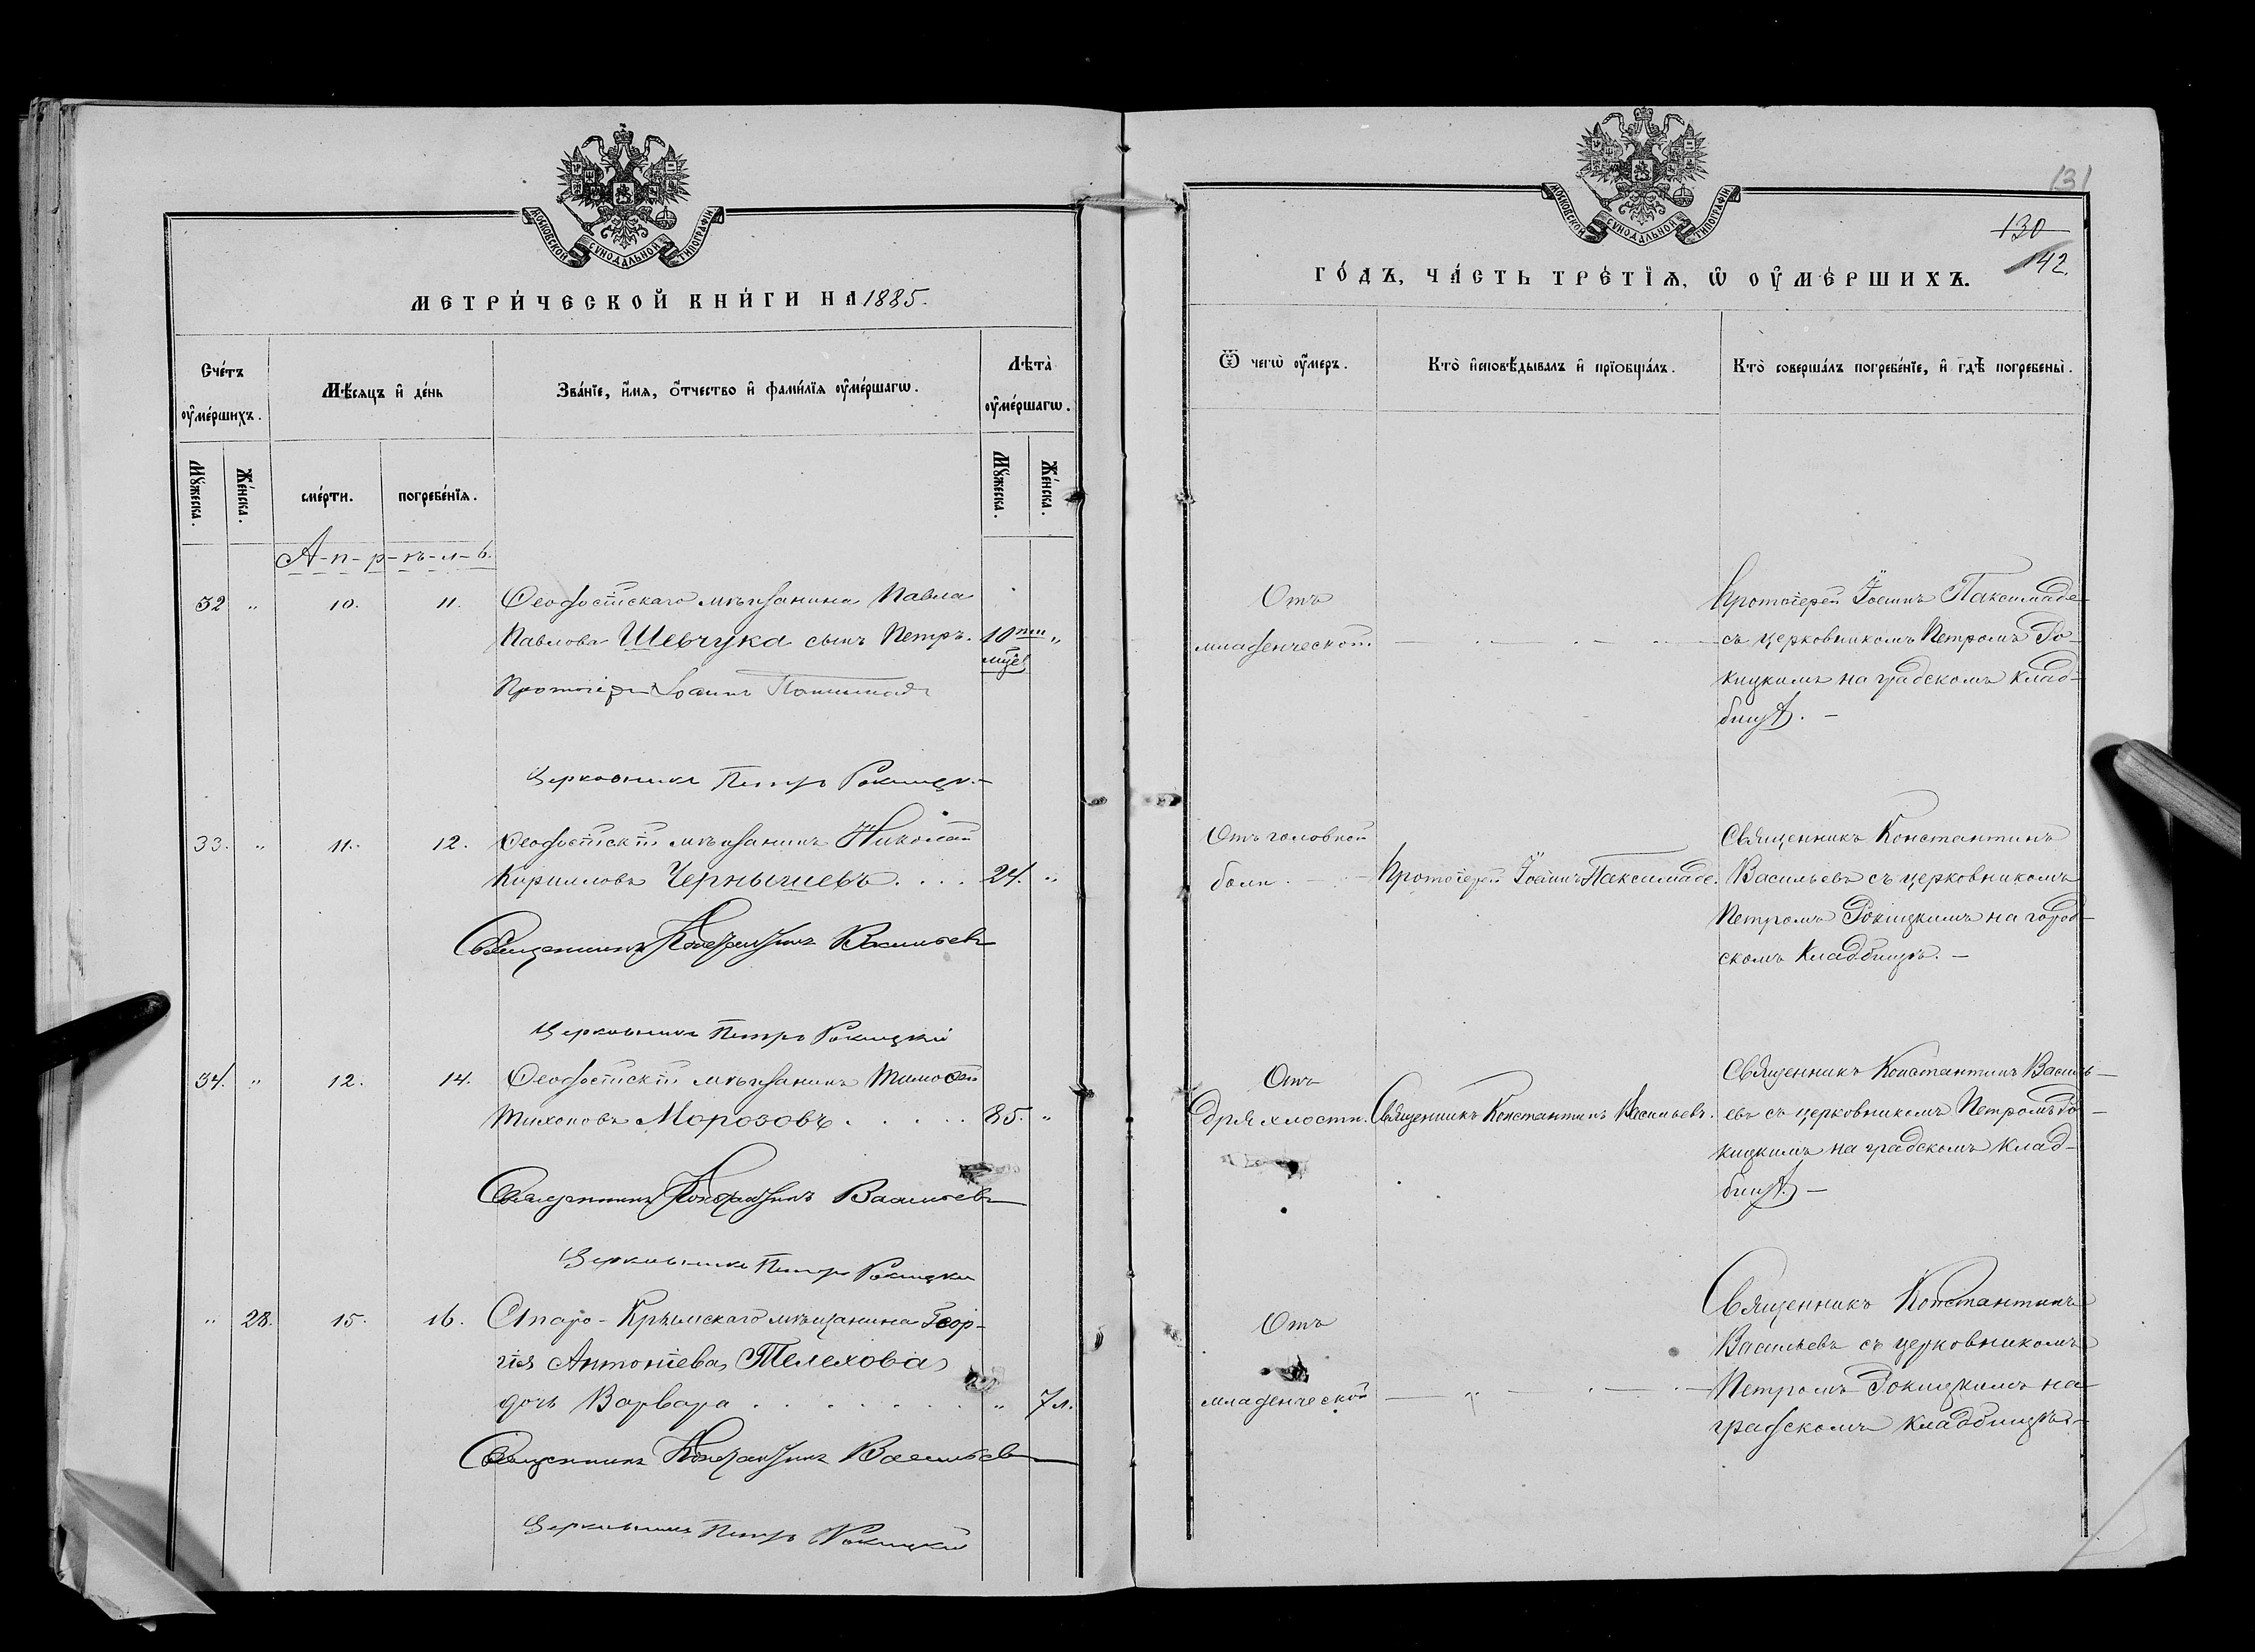 МОСКОВСКОЙ СѴНОДАЛЬНОЙ ТИПОГРАФІИ
МЕТРИ́ЧЕСКОЙ КНИ́ГИ НА 1885.
Сче́тъ ᲂу҆ме́ршихъ.
Мѣ́сяцъ и҆ де́нь
Зва́нїе, и҆́мѧ, ѻ҆́тчество и҆ фами́лїѧ ᲂу҆ме́ршагѡ.
Лѣта̀ ᲂу҆ме́ршагѡ.
Мꙋ́жеска.
Же́нска.
сме́рти.
погребе́нїѧ.
Мꙋ́жеска.
Же́нска.
А-п-р-ѣ-л-ь.
32 „ 10. 11. Ѳеодосійскаго мѣщанина Павла
Павлова Шевчука сынъ Петръ. 10ти „
мцс.
Протоіерей Іоаннъ Паксимаде
Церковникъ Петръ Рокицк.
33. „ 11. 12. Ѳеодосійскій мѣщанинъ Николай
Кирилловъ Чернышевъ. . . . 24. „
Священникъ Константинъ Васильевъ
Церковникъ Петръ Рокицкій
34. „ 12. 14. Ѳеодосійскій мѣщанинъ Тимоѳей
Тихоновъ Морозовъ. . . . . 85. „
Священникъ Константинъ Васильевъ
Церковникъ Петръ Рокицкій
„ 28. 15. 16. Старо-Крымскаго мѣщанина Геор-
гія Антоніева Телехова
дочь Варвара . . . . . . „ 7 л.
Священникъ Константинъ Васильевъ
Церковникъ Петръ Рокицкій
131
130
142.
МОСКОВСКОЙ СѴНОДАЛЬНОЙ ТИПОГРАФІИ
ГО́ДЪ, ЧА́СТЬ ТРЕ́ТЇѦ, Ѡ҆ ОУ҆МЕ́РШИХЪ.
Ѿ чегѡ̀ ᲂу҆́меръ.
Кто̀ и҆сповѣ́дывалъ и҆ прїобща́лъ.
Кто̀ соверша́лъ погребе́нїе, и҆ гдѣ̀ погребены̀.
Отъ
младенческой.
Протоіерей Іоаннъ Паксимаде
съ церковникомъ Петромъ Ро-
кицкимъ на градскомъ клад-
бищѣ. –
Отъ головной
боли.
Протоіерей Іоаннъ Паксимаде.
Священникъ Константинъ
Васильевъ съ церковникомъ
Петромъ Рокицкимъ на город-
скомъ кладбищѣ. –
Отъ
дряхлости.
Священникъ Константинъ Васильевъ.
Священникъ Константинъ Василь-
евъ съ церковникомъ Петромъ Ро-
кицкимъ на градскомъ клад-
бищѣ. –
Отъ
младенческой
Священникъ Константинъ
Васильевъ съ церковникомъ
Петромъ Рокицкимъ на
градскомъ кладбищѣ. –